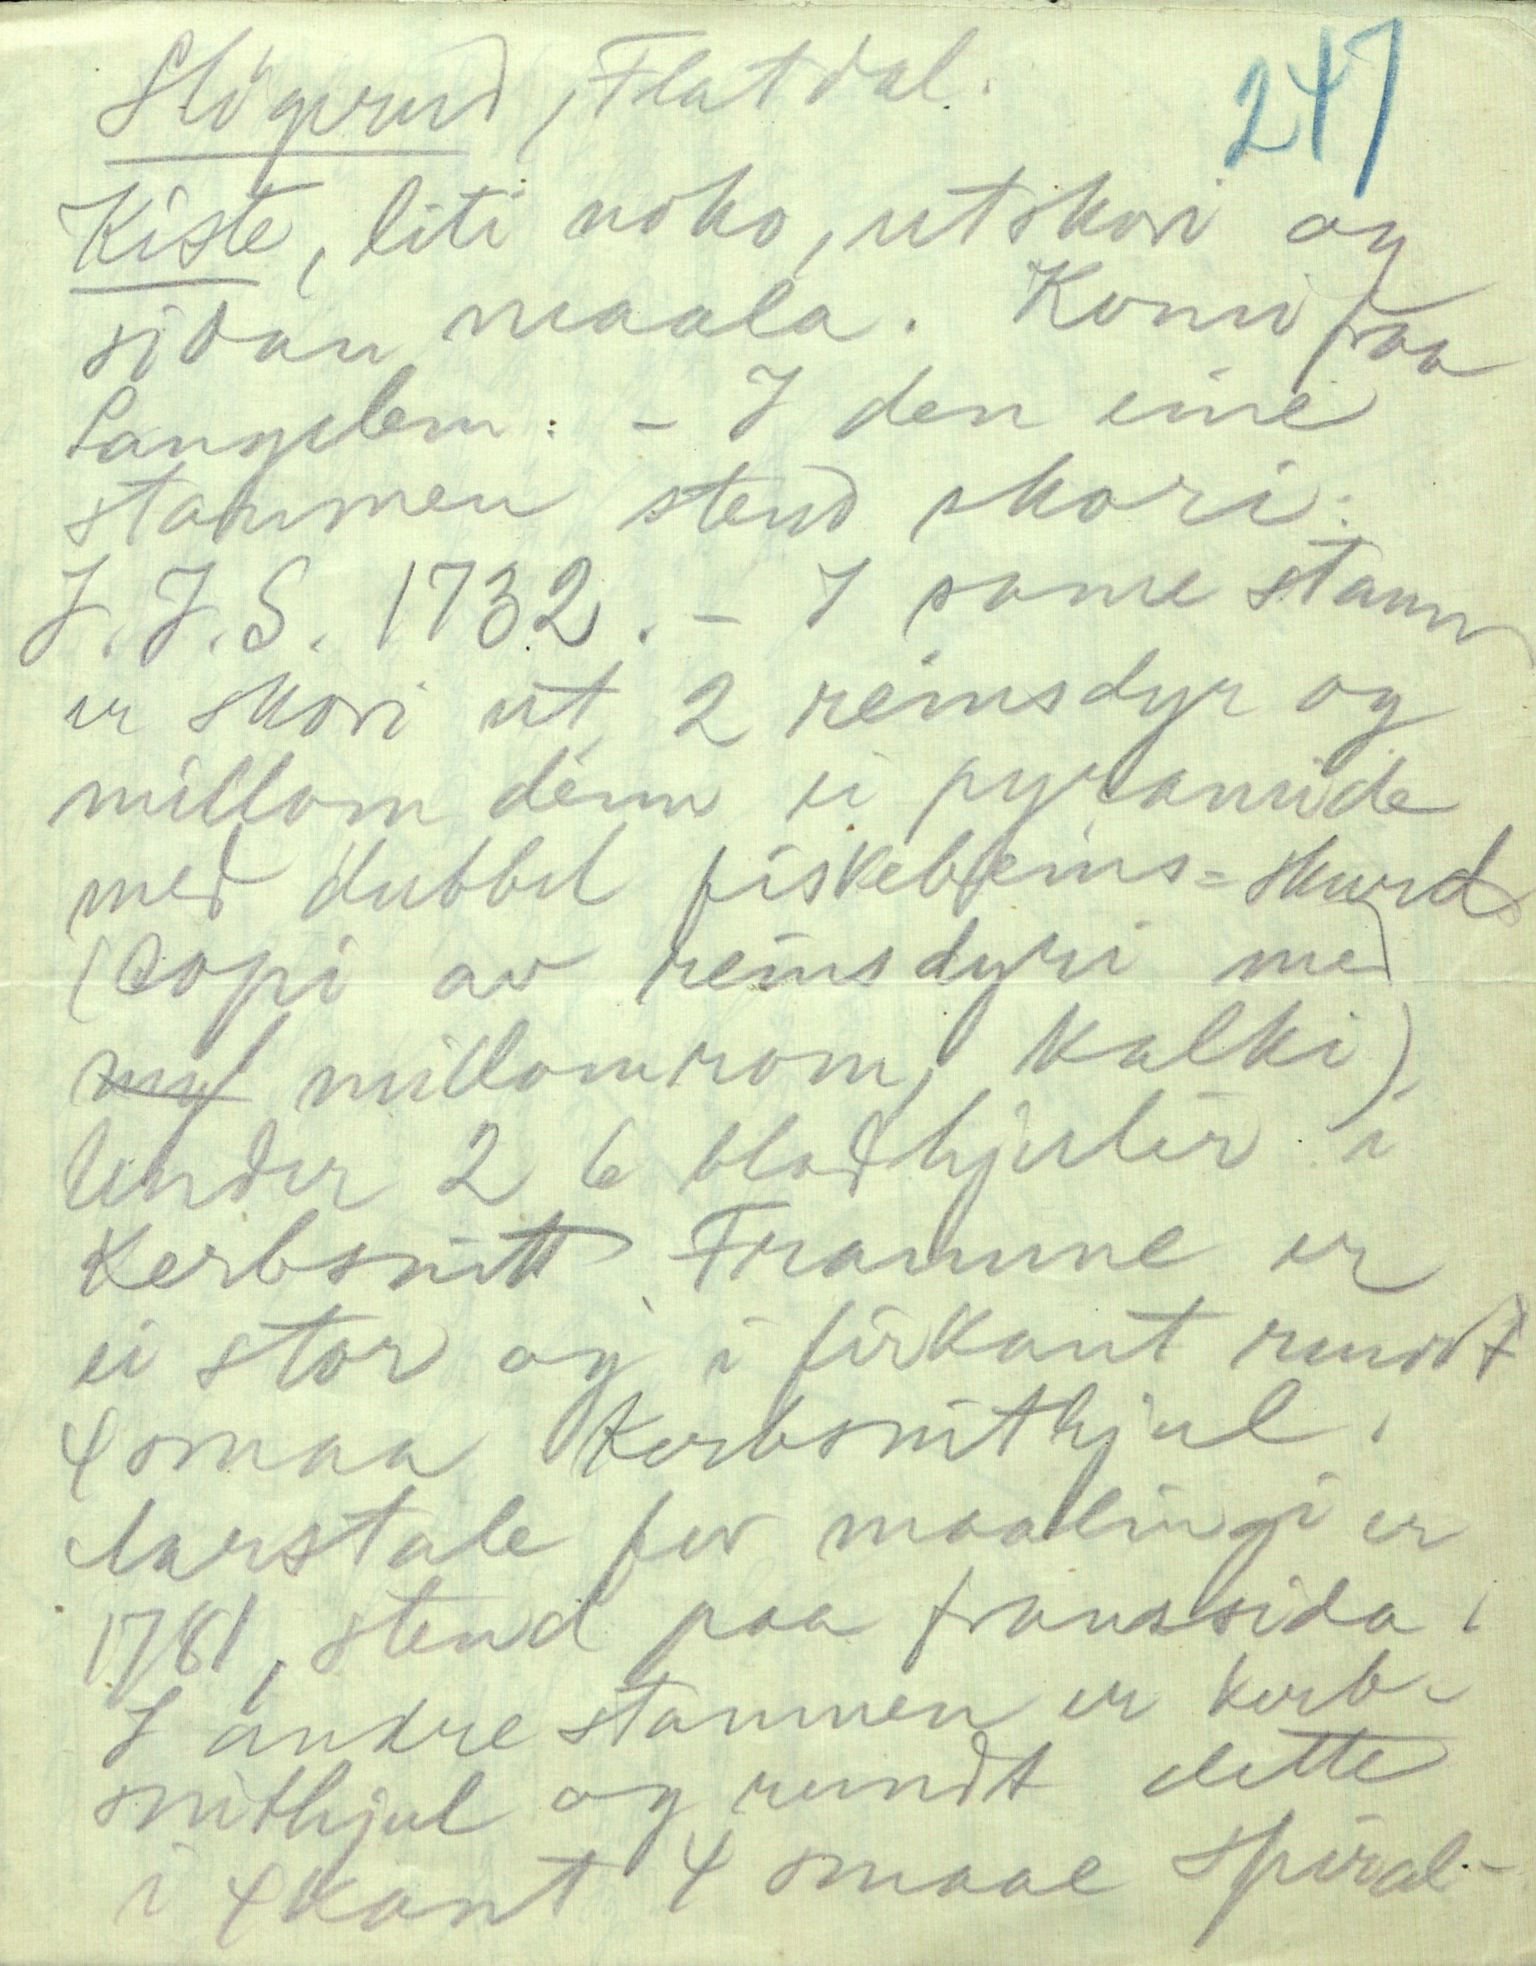 247
Flatdal.
Kiste, liti noko, utskori og
sidan maala. Komi fraa
Langelem. - I den eine
stammen stend skori:
J. J. S. 1732. - I same stamn
er skori ut 2 reinsdyr og
millom deim ei pyramide
med dubbel fiskebeins-skurd
(Copi av reinsdyri med
millomrom, kalki)
Under 2 6 bladhjuler i
Kerbsnitt. Framme er
ei stor og i firkant rundt
4 smaa Kerbsnithjul.
Aarstale for maalingi er
1781, stend paa framsida.
I andre stammen er kerb-
snithjul og rundt dette
i 4kant 4 smaae spiral-